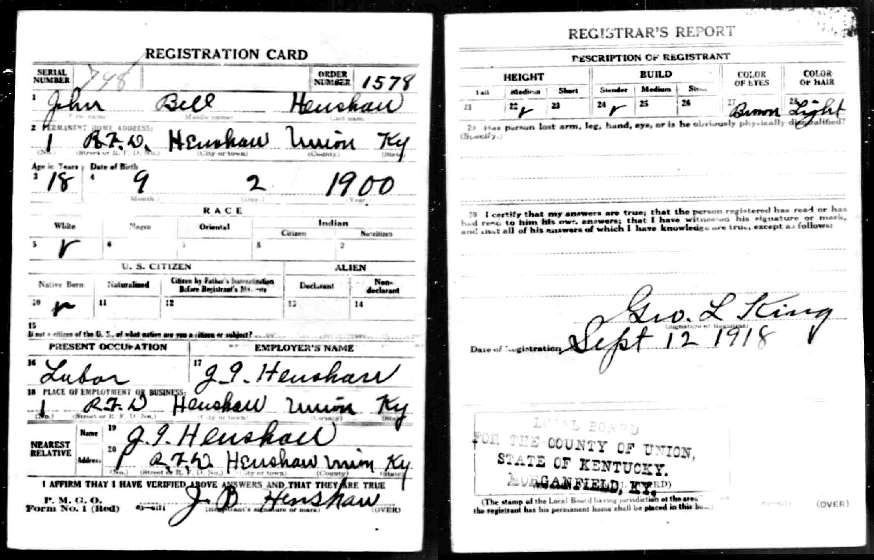 REGISTRATION CARD
SERIAL NUMBER 798 ORDER NUMBER 1578
1 John Bell Henshaw
First name Middle name Last name
2 PERMANENT HOME ADDRESS:
1 R.F.D. Henshaw Union Ky
(No.) (Street or R. F. D. No.) (City or town) (County) (State)
Age in Years Date of Birth
3 18 4 9 2 1900
Month Day Year
RACE
White Negro Oriental Indian
Citizen Noncitizen
5 6 7 8 9
U. S. CITIZEN ALIEN
Native Born Naturalized Citizen by Father's Naturalization Before Registrant's Majority Declarant Non-declarant
10 11 12 13 14
15
If not a citizen of the U. S., of what nation are you a citizen or subject?
PRESENT OCCUPATION EMPLOYER'S NAME
16 Labor 17 J. I. Henshaw
18 PLACE OF EMPLOYMENT OR BUSINESS:
1 R.F.D Henshaw Union Ky
(No.) (Street or R. F. D. No.) (City or town) (County) (State)
NEAREST RELATIVE
Name 19 J. I. Henshaw
Address 20 1 R.F.D. Henshaw Union Ky.
(No.) (Street or R. F. D. No.) (City or town) (County) (State)
I AFFIRM THAT I HAVE VERIFIED ABOVE ANSWERS AND THAT THEY ARE TRUE
P. M. G. O.
Form No. 1 (Red) J. B Henshaw
(Registrant's signature or mark) (OVER)
REGISTRAR'S REPORT
DESCRIPTION OF REGISTRANT
HEIGHT BUILD COLOR OF EYES COLOR OF HAIR
Tall Medium Short Slender Medium Stout
21 22 23 24 25 26 27 Brown 28 Light
29 Has person lost arm, leg, hand, eye, or is he obviously physically disqualified?
(Specify.)
30 I certify that my answers are true; that the person registered has read or has
had read to him his own answers; that I have witnessed his signature or mark,
and that all of his answers of which I have knowledge are true, except as follows:
Geo. L King
(Signature of Registrar)
Date of Registration Sept 12 1918
LOCAL BOARD
FOR THE COUNTY OF UNION,
STATE OF KENTUCKY.
MORGANFIELD, KY.
(The stamp of the Local Board having jurisdiction of the area
the registrant has his permanent home shall be placed in this box.)
(OVER)